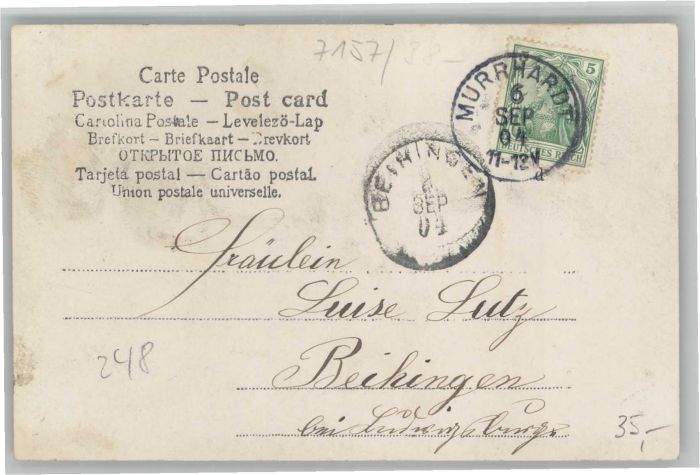 7157/38-
Carte Postale
Postkarte — Post card
Cartolina Postale – Levelező-Lap
Brefkort – Briefkaart – Brevkort
ОТКРЫТОЕ ПИСЬМО.
Tarjeta postal – Cartão postal.
Union postale universelle.
5
DEUTSCHES REICH
MURRHARDT
6
SEP
04
11-12V
d
BEIHINGEN
SEP
04
Fräulein
Luise Lutz
Beihingen
bei Ludwigsburg.
248
35,-